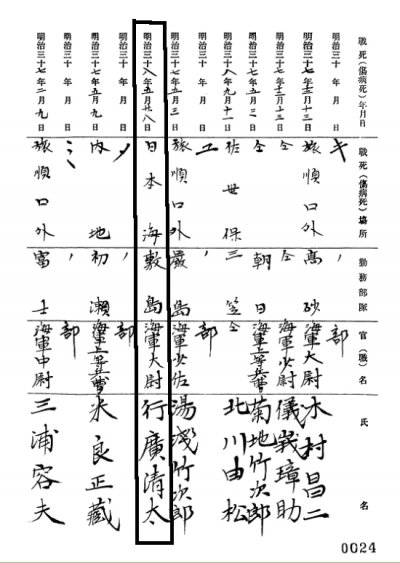 戰死(傷病死)年月日 戰死(傷病死)場所 勤務部隊 官(職)名 氏名
明治三十 年 月 日 キ 〃 部
明治三十七年十二月十三日 旅順口外 高砂 海軍大尉 木村昌二
明治三十七年十二月十三日 仝 仝 海軍少尉 儀峩璋助
明治三十七年五月 日 仝 朝日 海軍上等兵曹 菊地竹次郎
明治三十八年九月十一日 佐世保 三笠 仝 北川由松
明治三十 年 月 日 ユ 〃 部
明治三十七年五月三日 旅順口外 嚴島 海軍少佐 湯淺竹次郎
明治三十八年五月廿八日 日本海 敷島 海軍大尉 行廣清太
明治三十 年 月 日 〃 部
明治三十七年五月九日 内地 初瀬 海軍上等兵曹 米良正藏
明治三十 年 月 日 ミ 〃 部
明治三十七年二月九日 旅順口外 富士 海軍中尉 三浦容夫
0024